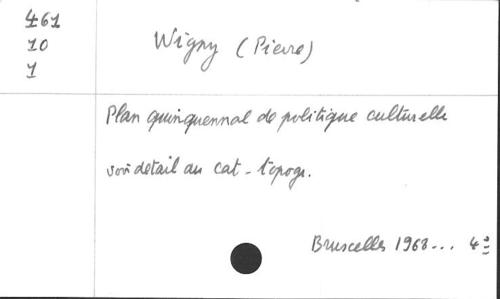 461
10
1
Wigny (Pierre)
Plan quinquennal de politique culturelle
voir détail au cat-topogr.
Bruxelles 1968... 4º